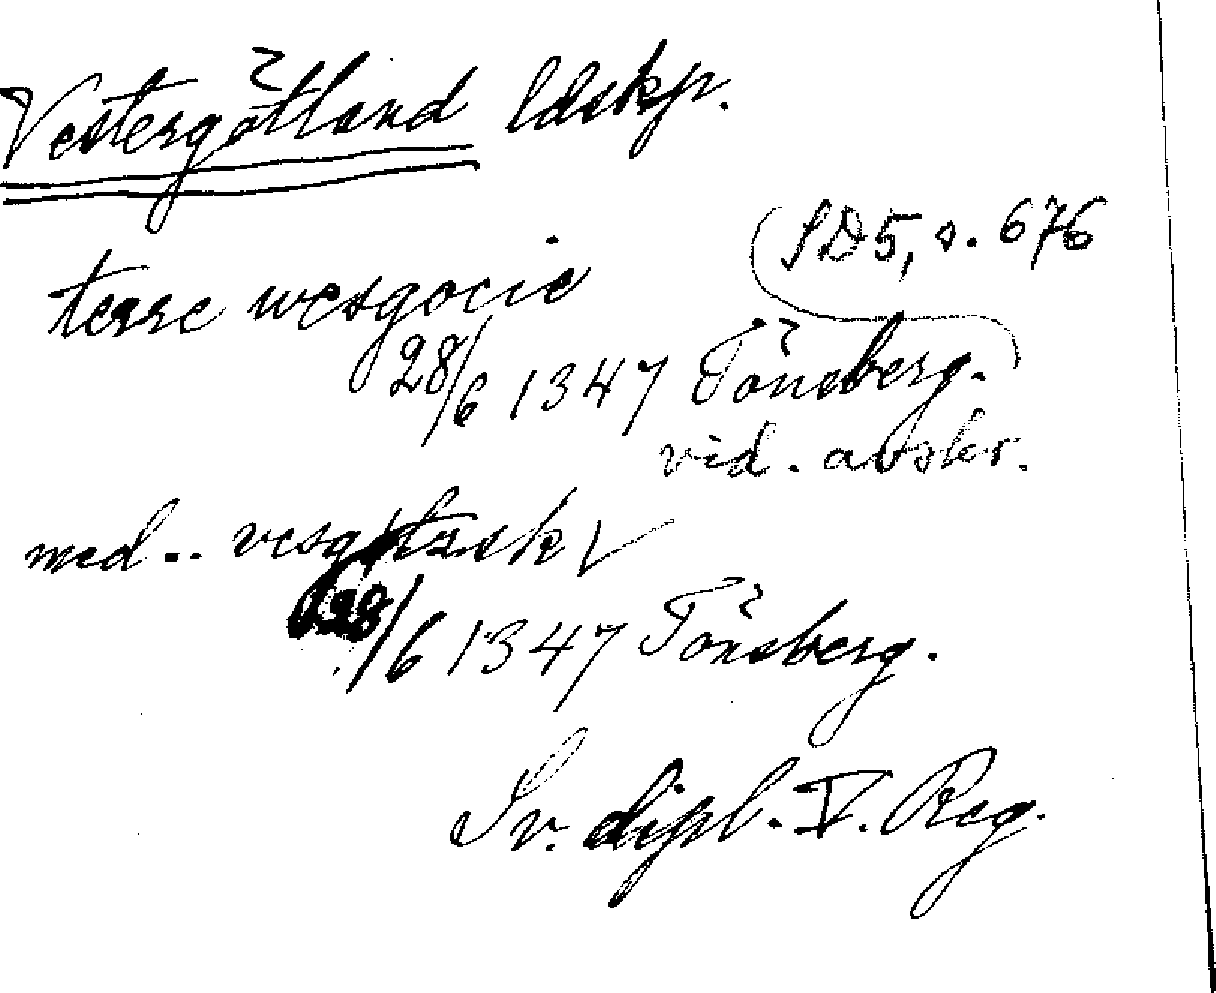 Vestergötland ldskp.
SD5, s. 676
terre wesgocie
28/6 1347 Tönsberg.
vid. avskr.
med..
28/6 1347 Tönsberg.
Sv. dipl. V. Reg.